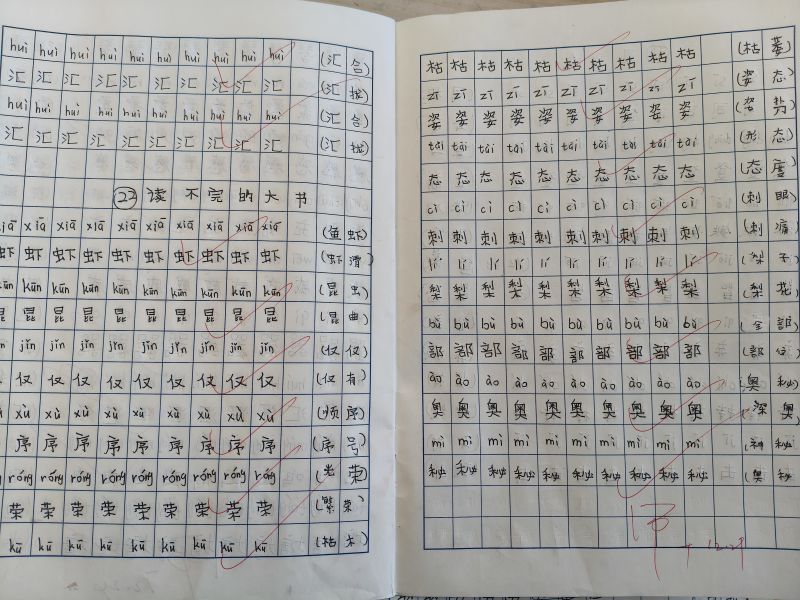 huì huì huì huì huì huì huì huì huì
汇 汇 汇 汇 汇 汇 汇 汇 汇 (汇合)
huì huì huì huì huì huì huì huì huì (汇报)
汇 汇 汇 汇 汇 汇 汇 汇 汇 (汇合)
(汇报)
22 读不完的大书
xiā xiā xiā xiā xiā xiā xiā xiā xiā (鱼虾)
虾 虾 虾 虾 虾 虾 虾 虾 虾 (虾滑)
kūn kūn kūn kūn kūn kūn kūn kūn kūn (昆虫)
昆 昆 昆 昆 昆 昆 昆 昆 昆 (昆曲)
jǐn jǐn jǐn jǐn jǐn jǐn jǐn jǐn jǐn (仅仅)
仅 仅 仅 仅 仅 仅 仅 仅 仅 (仅有)
xù xù xù xù xù xù xù xù xù (顺序)
序 序 序 序 序 序 序 序 序 (序号)
róng róng róng róng róng róng róng róng róng (光荣)
荣 荣 荣 荣 荣 荣 荣 荣 荣 (繁荣)
kū kū kū kū kū kū kū kū kū (枯木)
枯 枯 枯 枯 枯 枯 枯 枯 枯 枯 (枯萎)
zī zī zī zī zī zī zī zī zī zī (姿态)
姿 姿 姿 姿 姿 姿 姿 姿 姿 姿 (姿势)
tài tài tài tài tài tài tài tài tài tài (形态)
态 态 态 态 态 态 态 态 态 态 (态度)
cì cì cì cì cì cì cì cì cì cì (刺眼)
刺 刺 刺 刺 刺 刺 刺 刺 刺 刺 (刺痛)
lí lí lí lí lí lí lí lí lí lí (梨子)
梨 梨 梨 梨 梨 梨 梨 梨 梨 梨 (梨花)
bù bù bù bù bù bù bù bù bù bù (全部)
部 部 部 部 部 部 部 部 部 部 (部位)
ào ào ào ào ào ào ào ào ào ào (奥秘)
奥 奥 奥 奥 奥 奥 奥 奥 奥 奥 (深奥)
mì mì mì mì mì mì mì mì mì mì (神秘)
秘 秘 秘 秘 秘 秘 秘 秘 秘 秘 (奥秘)